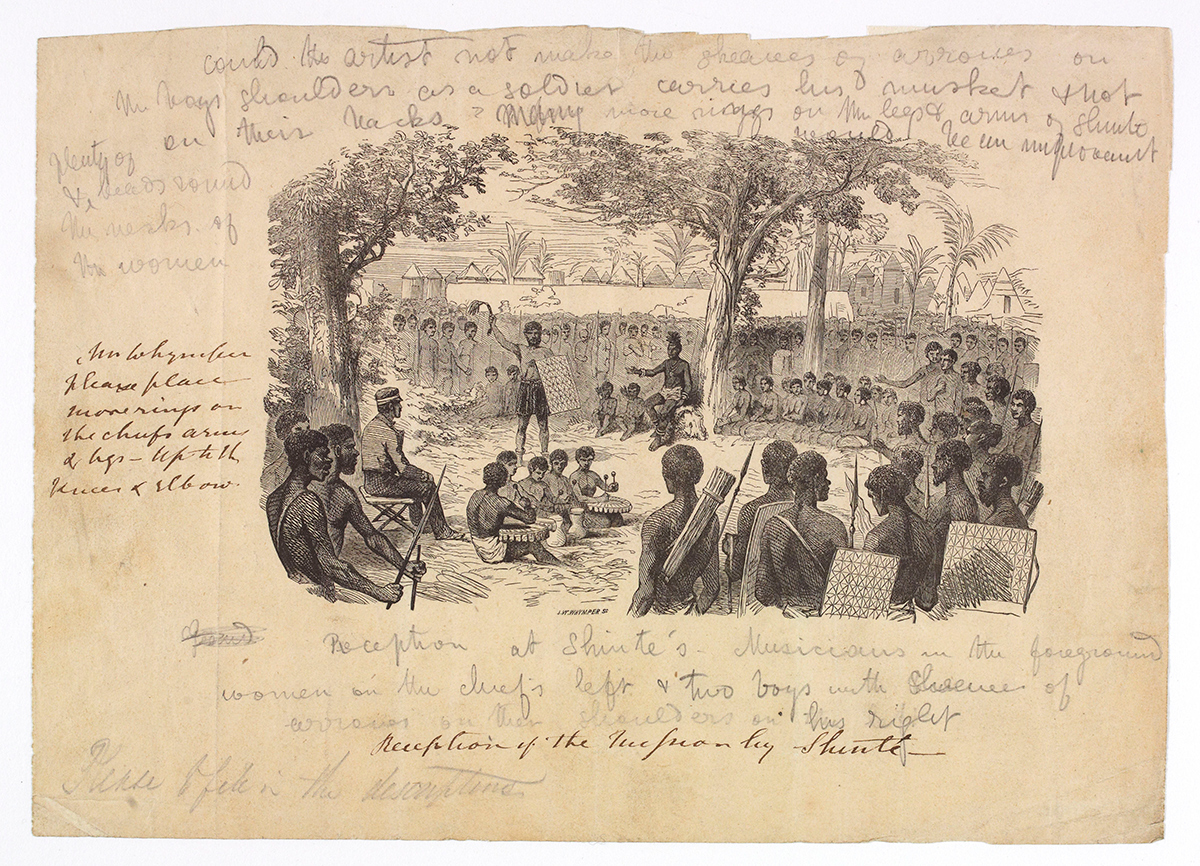 could the artist not make the sheaves of arrows on
the boys shoulders as a soldier carries his musket & not
on their backs? Many more rings on the legs & arms of Shinte
would be an improvement
plenty of
& beads round
the necks of
the women
Mr Whymper
please place
more rings on
the chiefs arms
& legs - Up to the
knees & elbow.
J.W. WHYMPER SC
Reception at Shinte's - Musicians in the foreground
women on the chief's left & two boys with sheaves of
arrows on their shoulders on his right
Reception of the Mission by Shinte
Please to fill in the descriptions